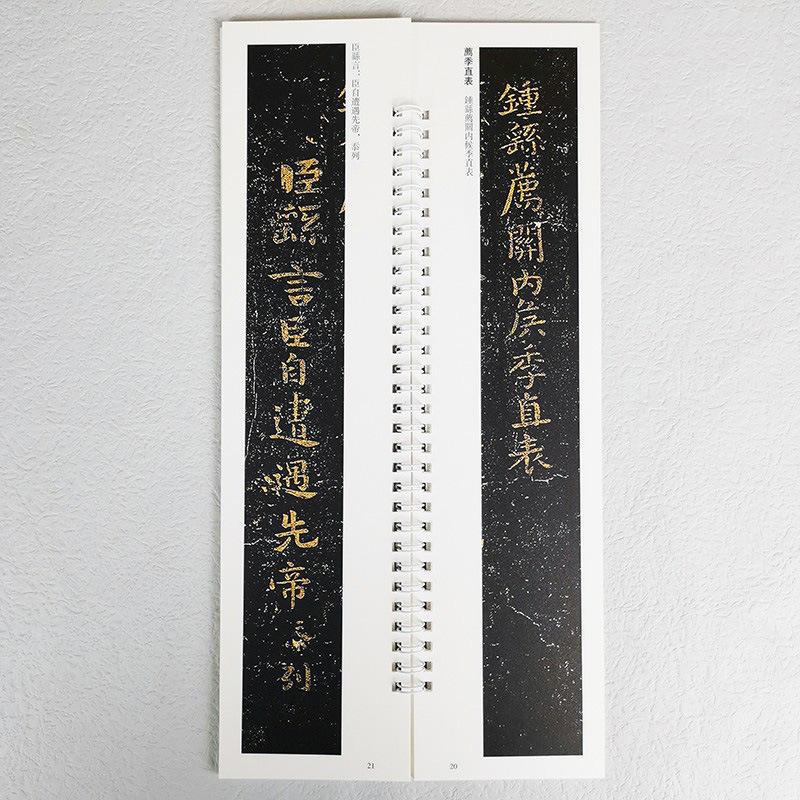 薦季直表 鍾繇薦關内候季直表
鍾繇薦關内侯季直表
20
臣繇言、臣自遭遇先帝、忝列
臣繇言臣自遭遇先帝忝列
21